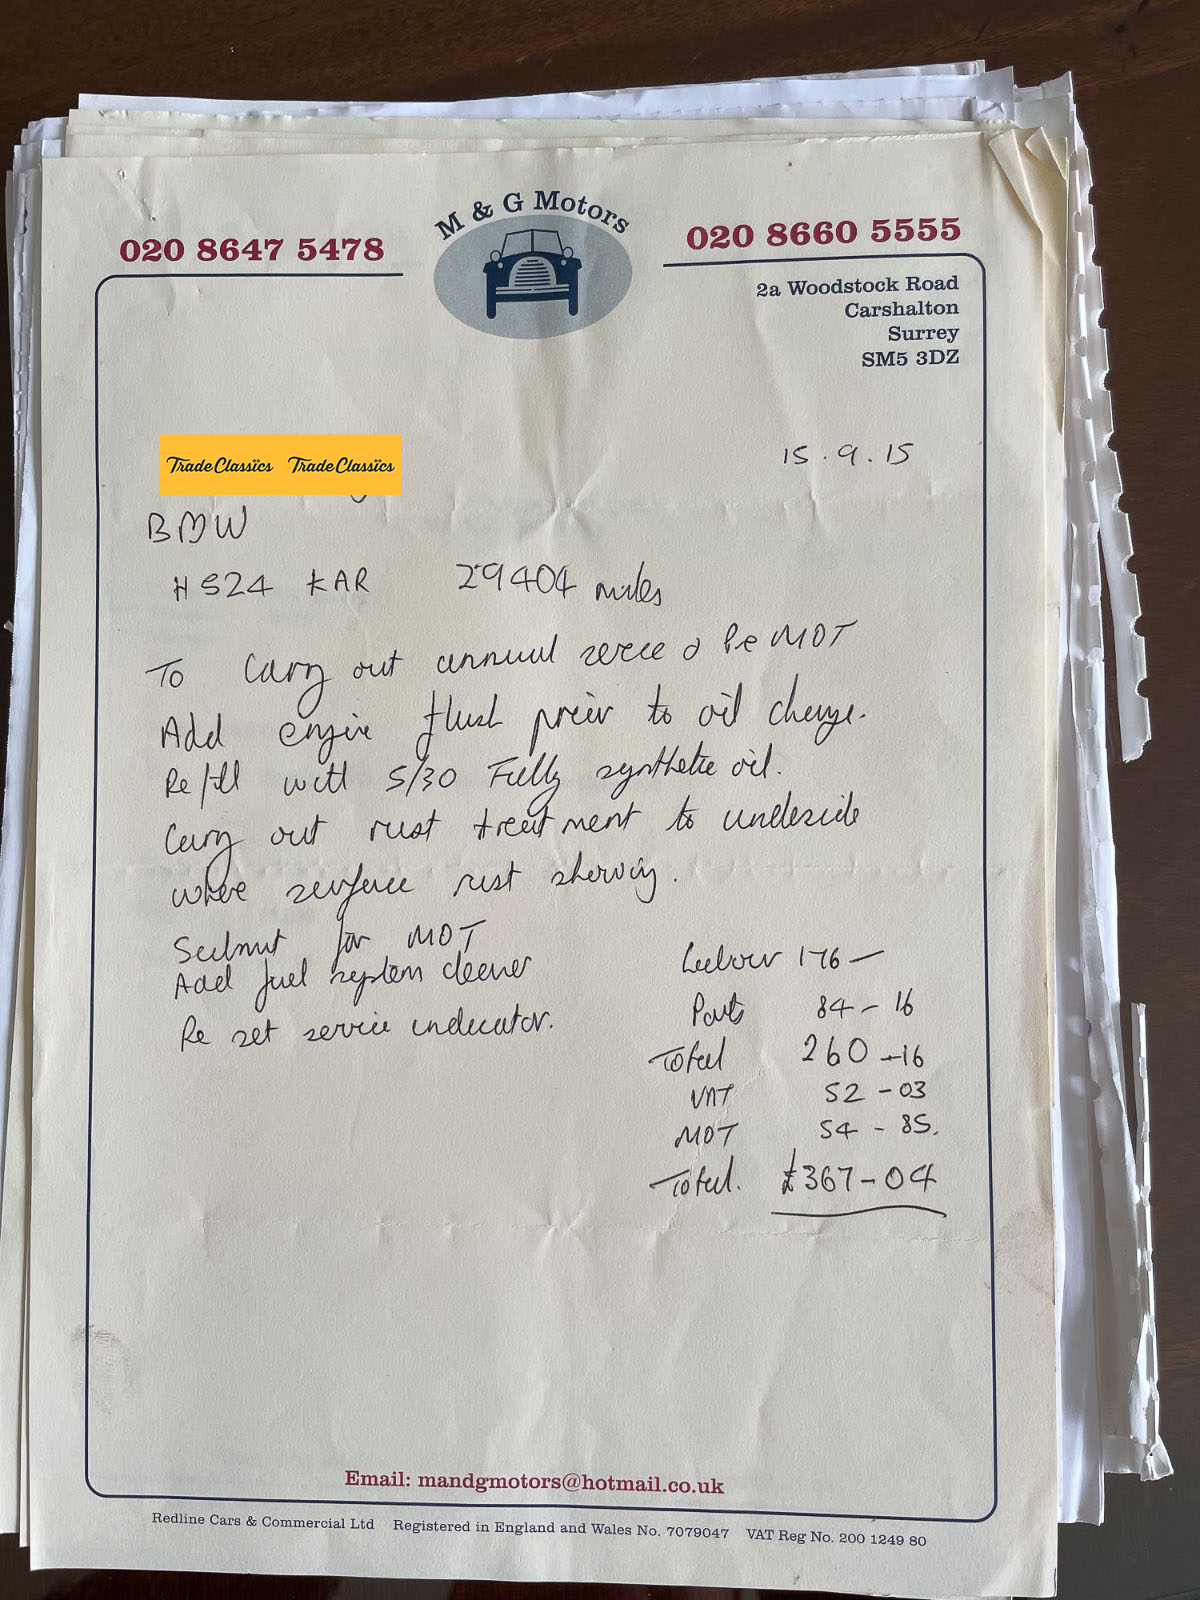 M & G Motors
020 8647 5478
020 8660 5555
2a Woodstock Road
Carshalton
Surrey
SM5 3DZ
TradeClassics TradeClassics
15.9.15
BMW
H524 KAR 29404 miles
To Carry out annual service & Pre MOT
Add engine flush prior to oil change.
Refill with 5/30 Fully synthetic oil.
Carry out rust treatment to underside
where surface rust showing.
Submit for MOT
Add fuel system cleaner
Re set service indicator.
Labour 176 —
Parts 84 - 16
Total 260 - 16
VAT 52 - 03
MOT 54 - 85.
Total. £367 - 04
Email: mandgmotors@hotmail.co.uk
Redline Cars & Commercial Ltd Registered in England and Wales No. 7079047 VAT Reg No. 200 1249 80